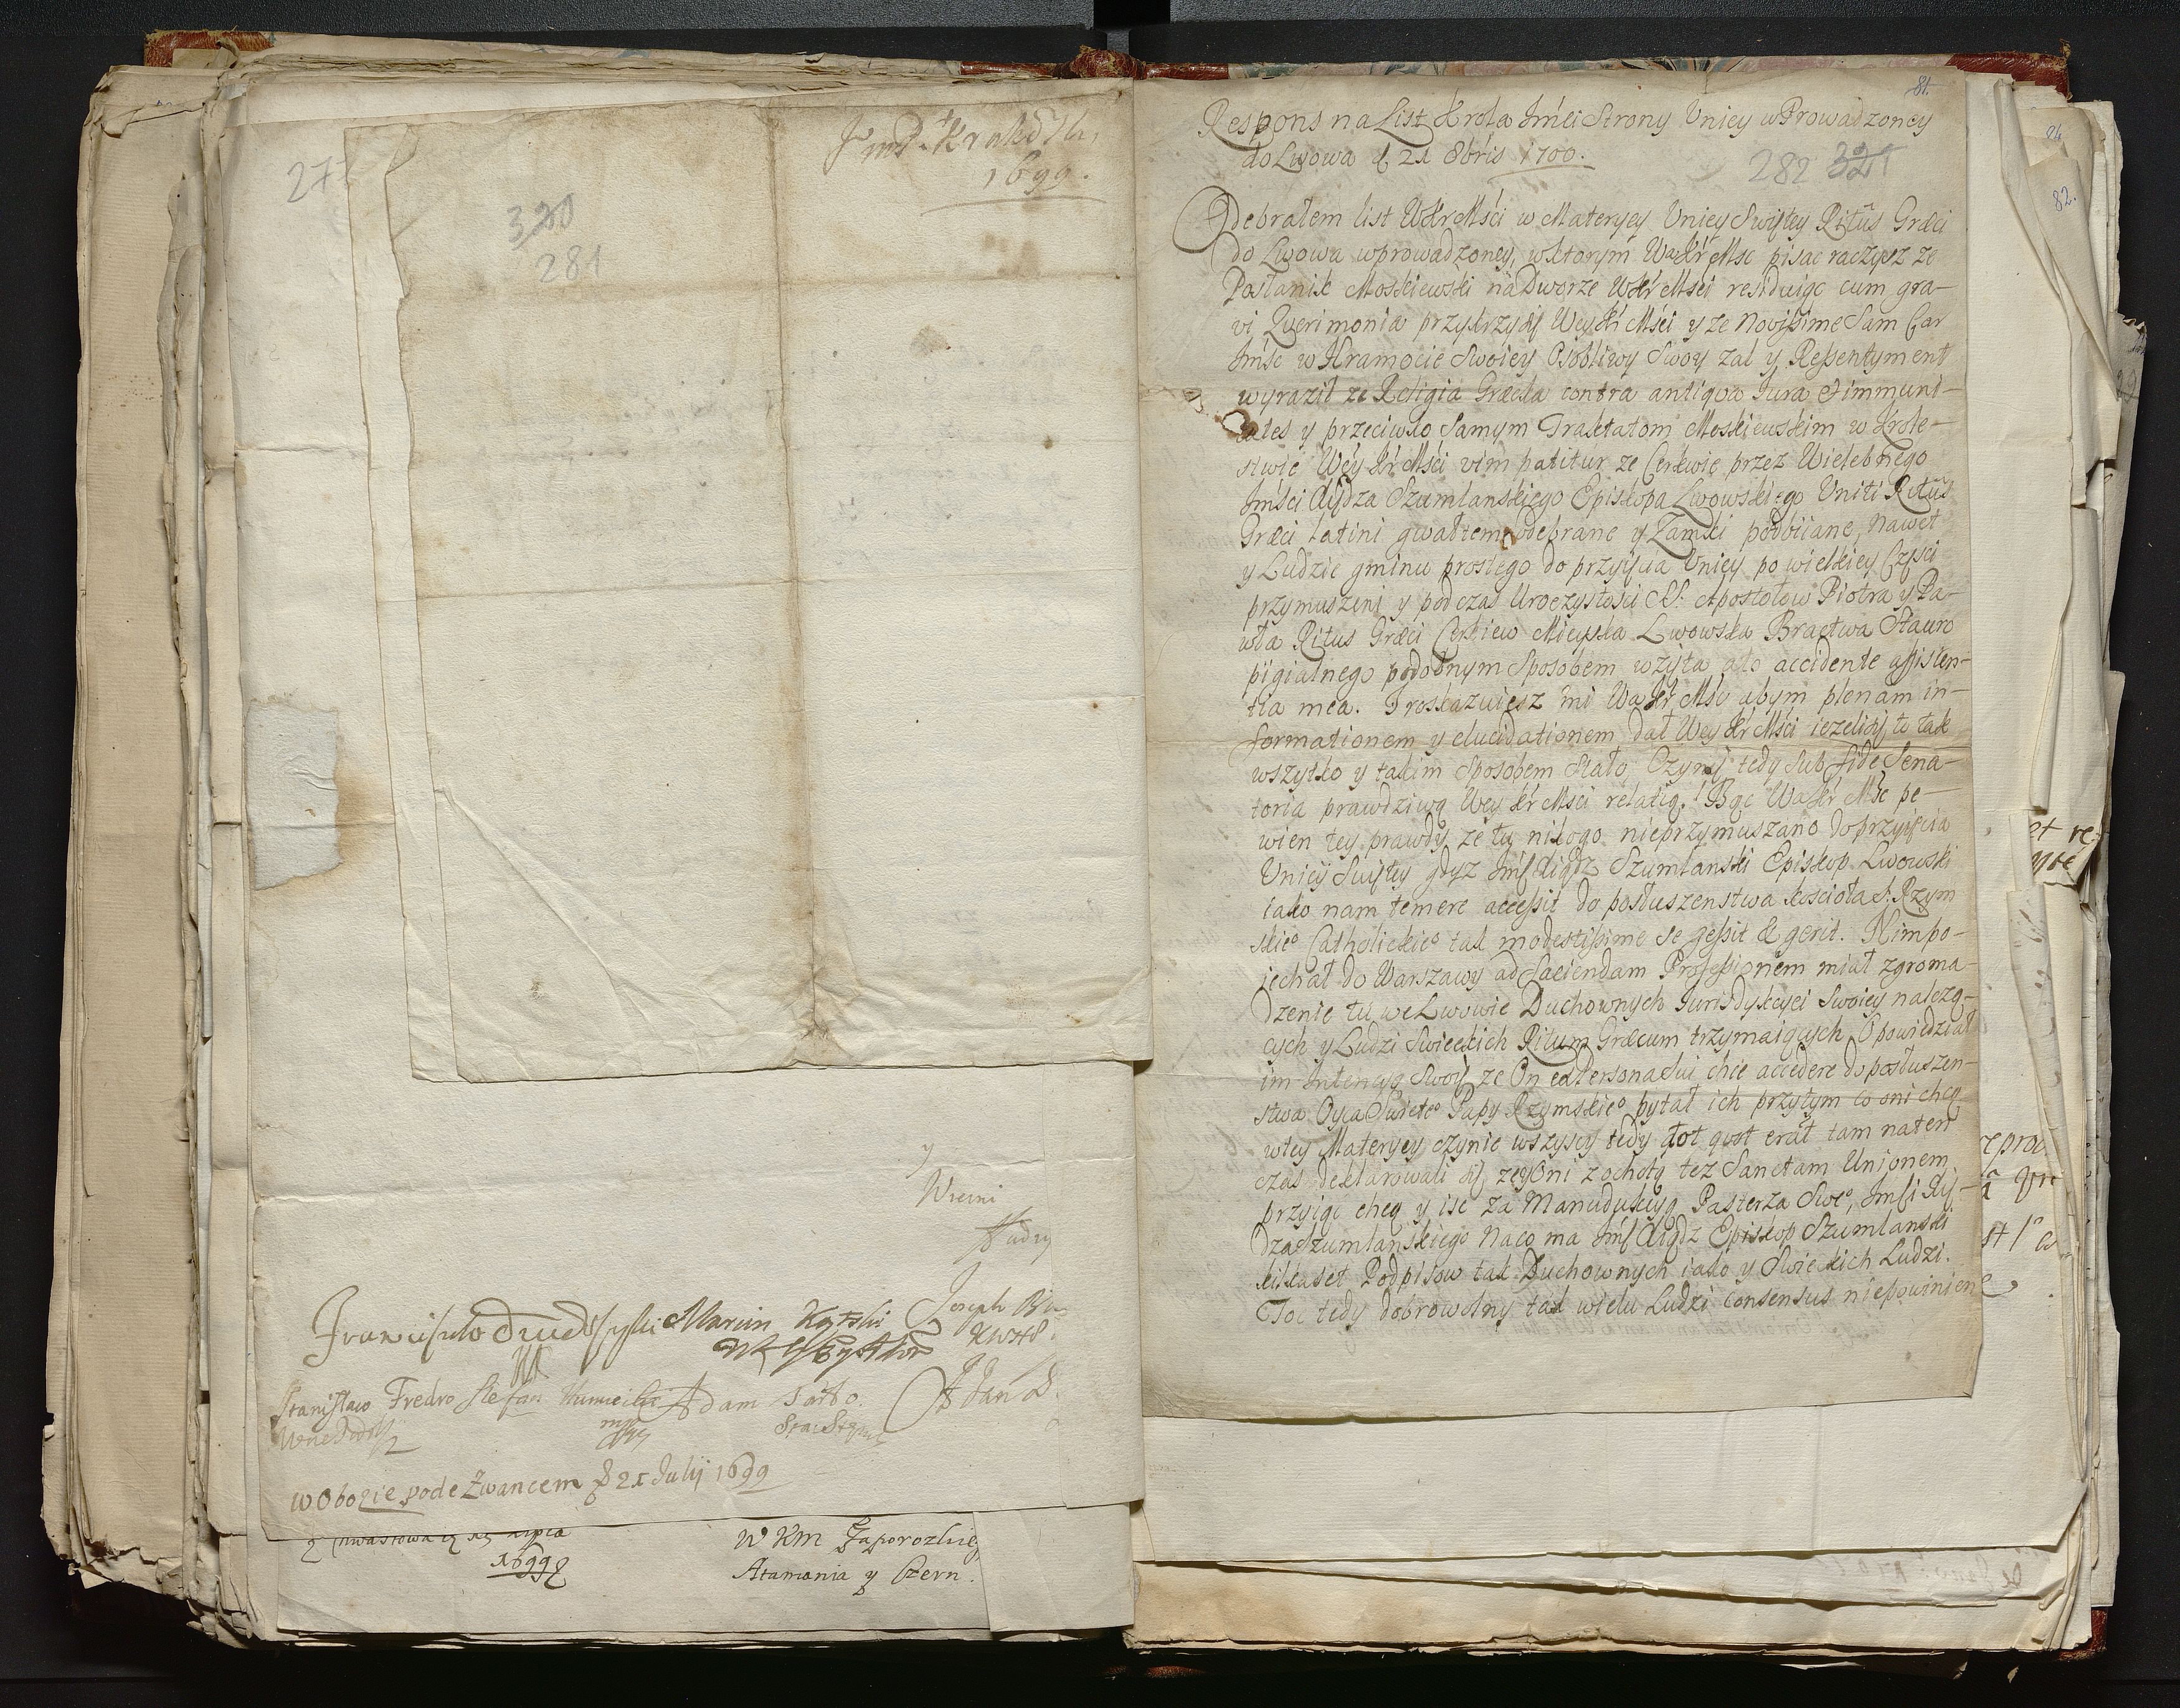 277
320
281
1699.
y
Wierni
Słudzy
Marcin Kątski
Joseph
Stanisław Fredro Stefan Adam
w Obozie pode Zwancem d 21 Julij 1699
1699
W Km Zaporozkiey
Atamania y Czern.
81.
Respons na List Krola Jmći Strony Uniey wProwadzoney
do Lwowa d 21 8bris 1700.
282 321
Odebrałem list WKrMśći w Materyey Uniey Swiętey Ritûs Græci
do Lwowa wprowadzoney, wktorym WaKrMsc pisac raczysz ze
Posłanik Moskiewski na Dworze WKrMśći residuiąc cum gra-
vi Querimonia przykrzy się WeyKrMśći y ze Novissime Sam Car
Jmśc w Hramocie Swoiey Osobliwy Swoy zal y Ressentyment
wyraził ze Religia Græcka contra antiqua Iura et immuni-
tates y przeciwko Samym Traktatom Moskiewskim w Krole-
stwie WeyKrMśći vim patitur ze Cerkwie przez Wielebnego
Jmśći Xiędza Szumlanskiego Episkopa Lwowskiego Uniti Ritûs
Græci Latini gwałtem odebrane y Zamki podbiiane, nawet
y Ludzie gminu prostego do przyięcia Uniey po wielkiey Częsci
przymuszeni y podczas Uroczystości SS. Apostołow Piotra y Pa-
wła Ritus Græci Cerkiew Mieyska Lwowska Bractwa Stauro
pigialnego podobnym Sposobem wzięta ato accidente assisten-
tia mea. Proskazuiesz mi WaKrMśc abym plenam in-
formationem y elucidationem dał WeyKrMśći iezeli się to tak
wszytko y takim Sposobem stało, Czynię tedy Sub fide Sena-
toria prawdziwą WeyKrMśći relatią. Bąc WaKrMśc pe-
wien tey prawdy ze tu nikogo nieprzymuszano do przyięcia
Uniey Swiętey gdyz Jmść Xiądz Szumlanski Episkop Lwowski
iako nam temere accessit do posłuszenstwa koscioła S. Rzym
skieo Catholickieo tak modestissime se gessit & gerit. Nimpo-
iechał do Warszawy ad faciendam Professionem miał zgroma-
dzenie tu we Lwowie Duchownych Jurisdykcyei Swoiey nalezą-
cych y Ludzi Swieckich Ritum Græcum trzymaiących, Opowiedział
im Intencyą Swoię ze On ea Persona Sui chce accedere do posłuszen-
stwa Oyca Swieteo Papy Rzymskieo pytał ich przytym co oni chcą
wtey Materyey czynic wszyscy tedy tot qvot erât tam naten
czas deklarowali się zesz Oni z ochotą tez Sanctam Unionem
przyiąc chcą y isc za Manudukcyą Pasterza Sweo, Jmści Xię-
dza Szumlanskiego Naco ma Jmść Xiądz Episkop Szumlanski
kilkaset Podpisow tak Duchownych iako y Swieckich Ludzi.
Toc tedy dobrowolny tak wielu Ludzi consensus niepowinien